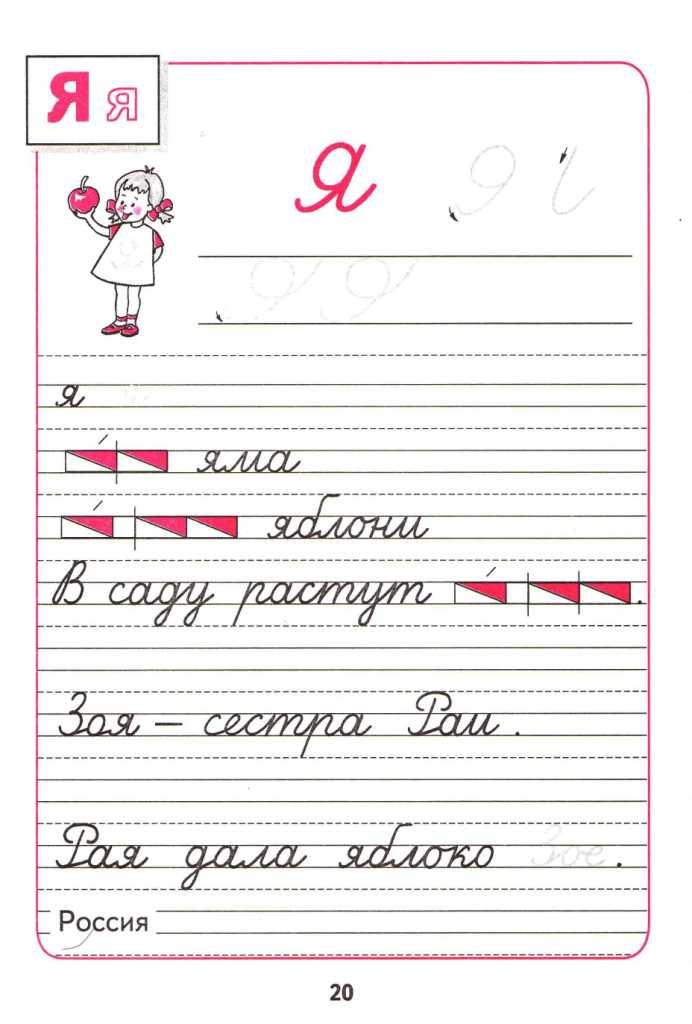 Я я
Я Я
Я Я
я
яма
яблони
В саду растут .
Зоя – сестра Раи.
Рая дала яблоко Зое.
Россия
20